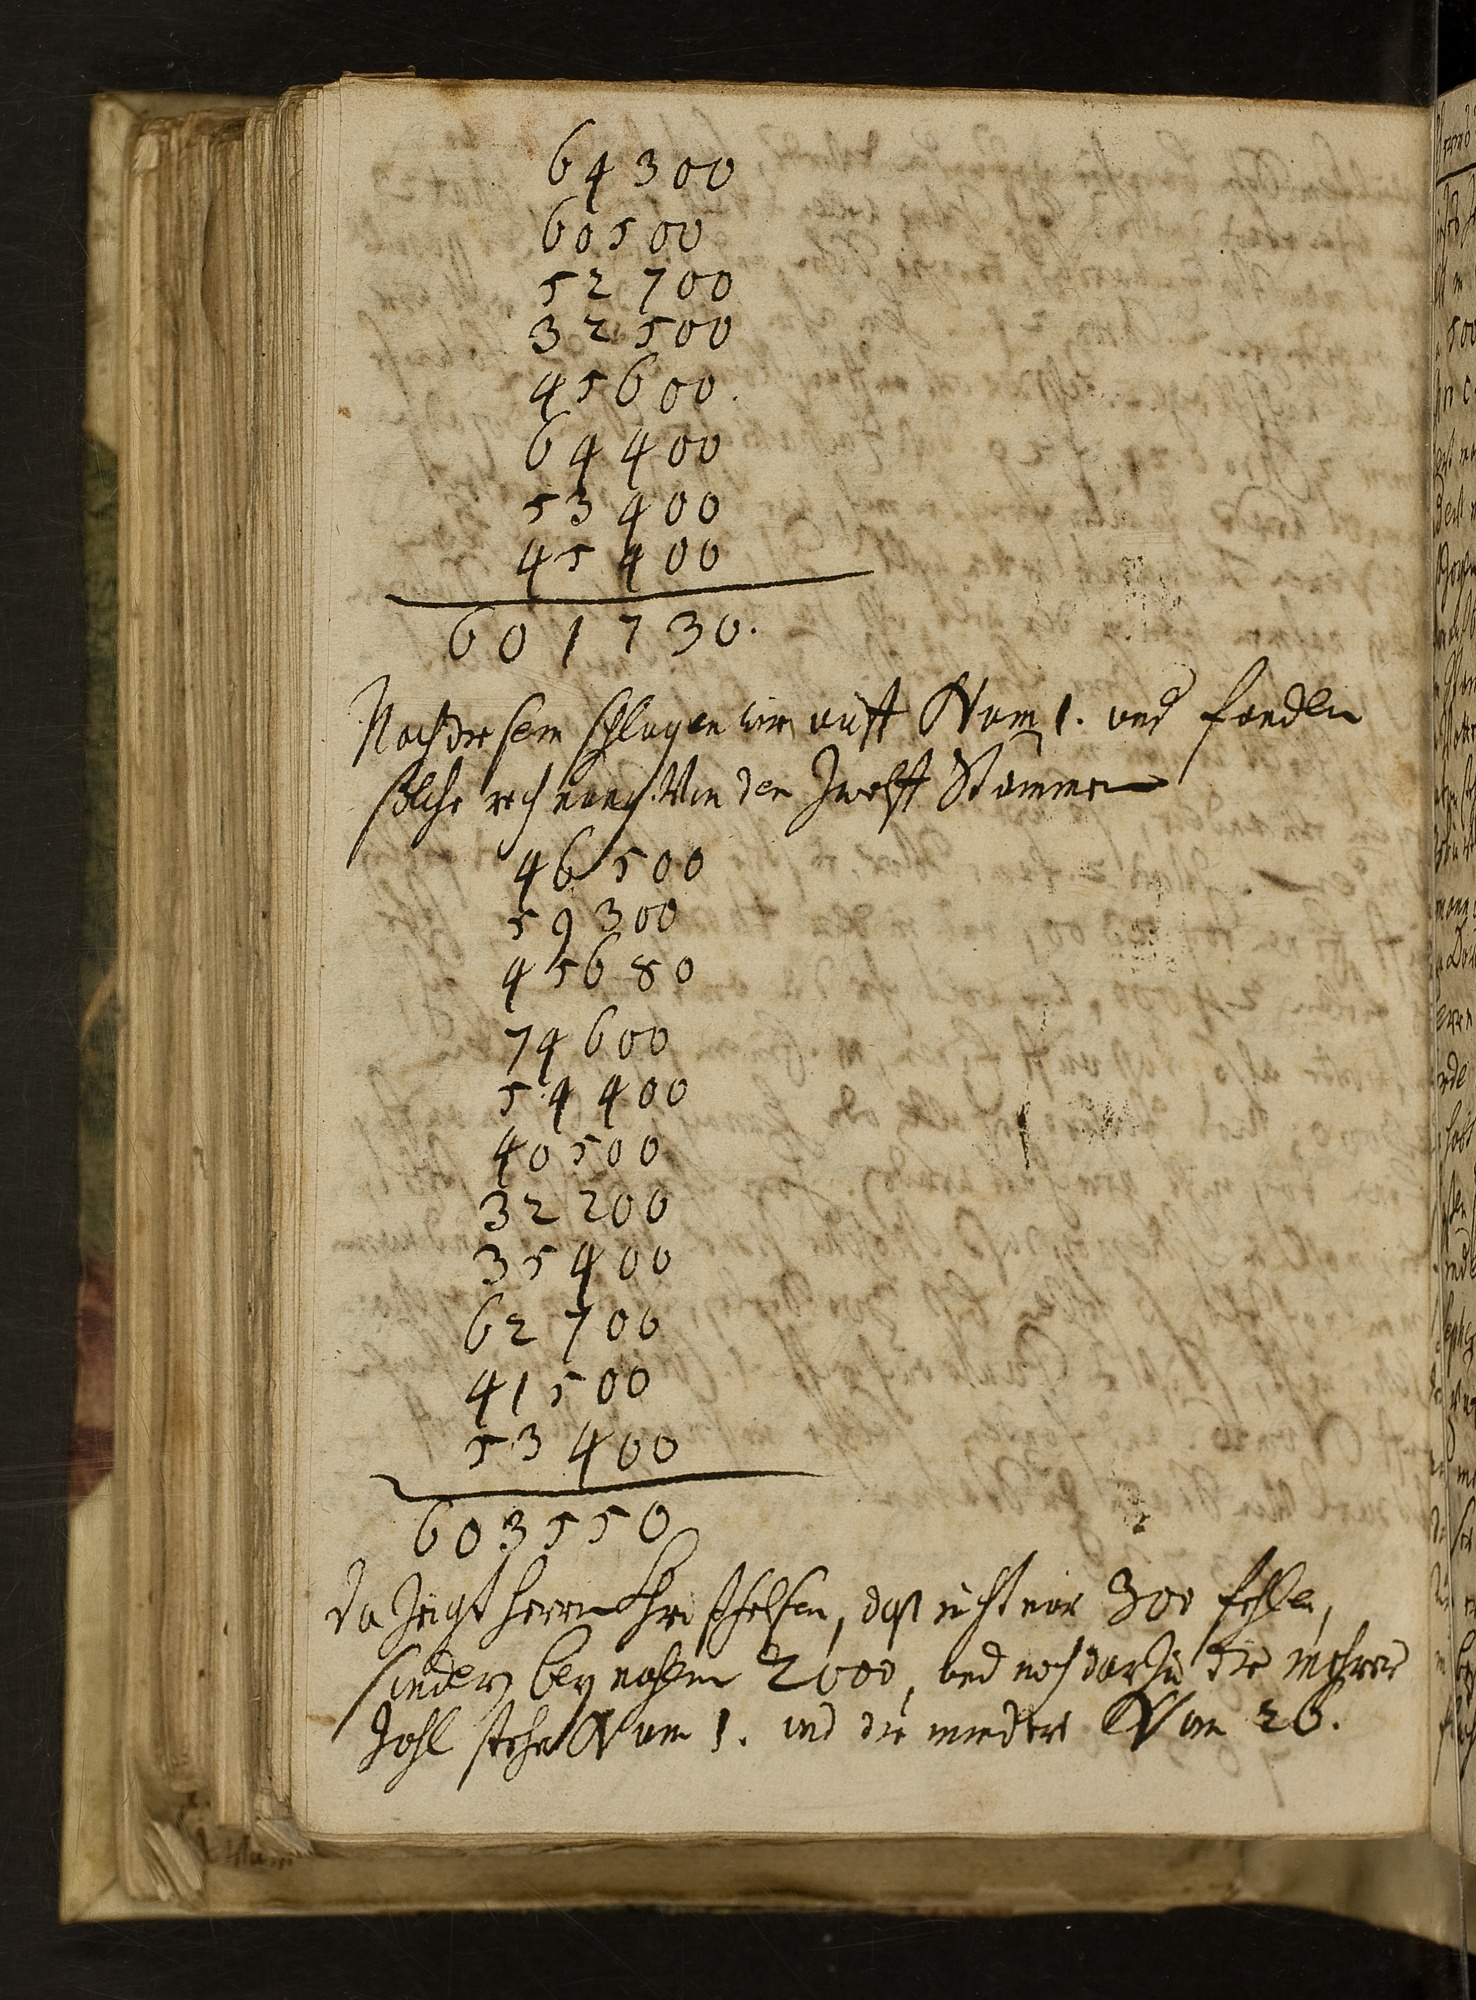 64300
60500
52700
32500
45600.
64400
53400
45400
601730.
Nach diesem schlugen wir auff Num 1. und fanden
solche rechnung Von den Zwelff Stämmen
46500
59300
45680
74600
54400
40500
32200
35400
62700
41500
53400
603550
Da Zeigt herrn, dass nicht nur 300 fehlen,
sondern bey nahem 2000, und noch darzu die mehrere
Zahl stehe Num 1. und die mindere Num 26.